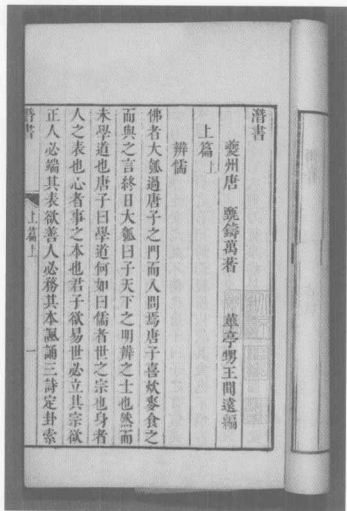 潛書
夔州唐 甄鑄萬著 華亭甥王聞遠編
上篇上
辨儒
佛者大瓠過唐子之門而入問焉唐子喜炊麥食之
而與之言終日大瓠曰子天下之明辨之士也然而
未學道也唐子曰學道何如曰儒者世之宗也身者
人之表也心者事之本也君子欲易世必立其宗欲
正人必端其表欲善人必務其本諷誦三詩定卦索
潛書 上篇上 一